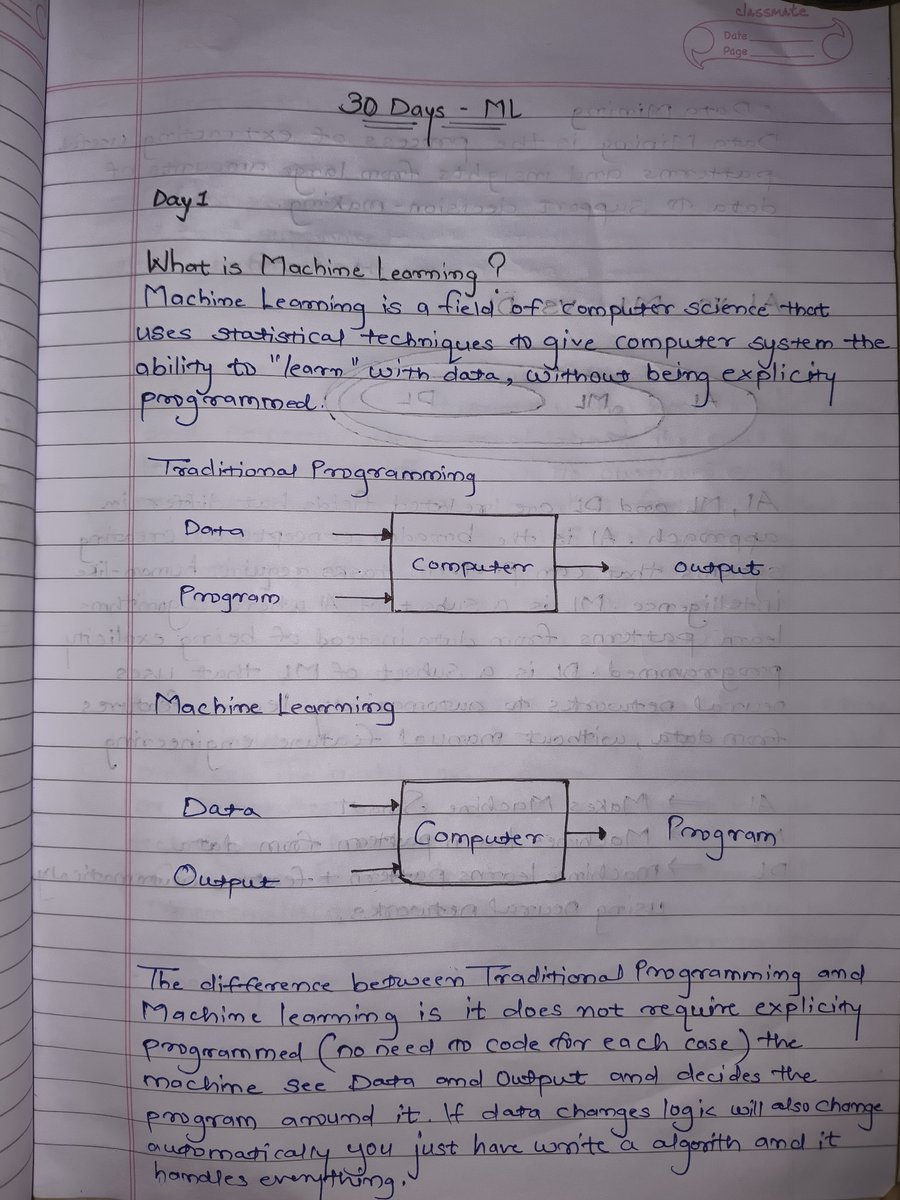 classmate
Date
Page
30 Days - ML
Day 1
What is Machine Learning?
Machine Learning is a field of computer science that
uses statistical techniques to give computer system the
ability to "learn" with data, without being explicity
programmed.
Traditional Programming
Data
Computer
Output
Program
Machine Learning
Data
Computer
Program
Output
The difference between Traditional Programming and
Machine learning is it does not require explicity
programmed (no need to code for each case) the
machine see Data and Output and decides the
program around it. If data changes logic will also change
automatically you just have write a algorith and it
handles everything.